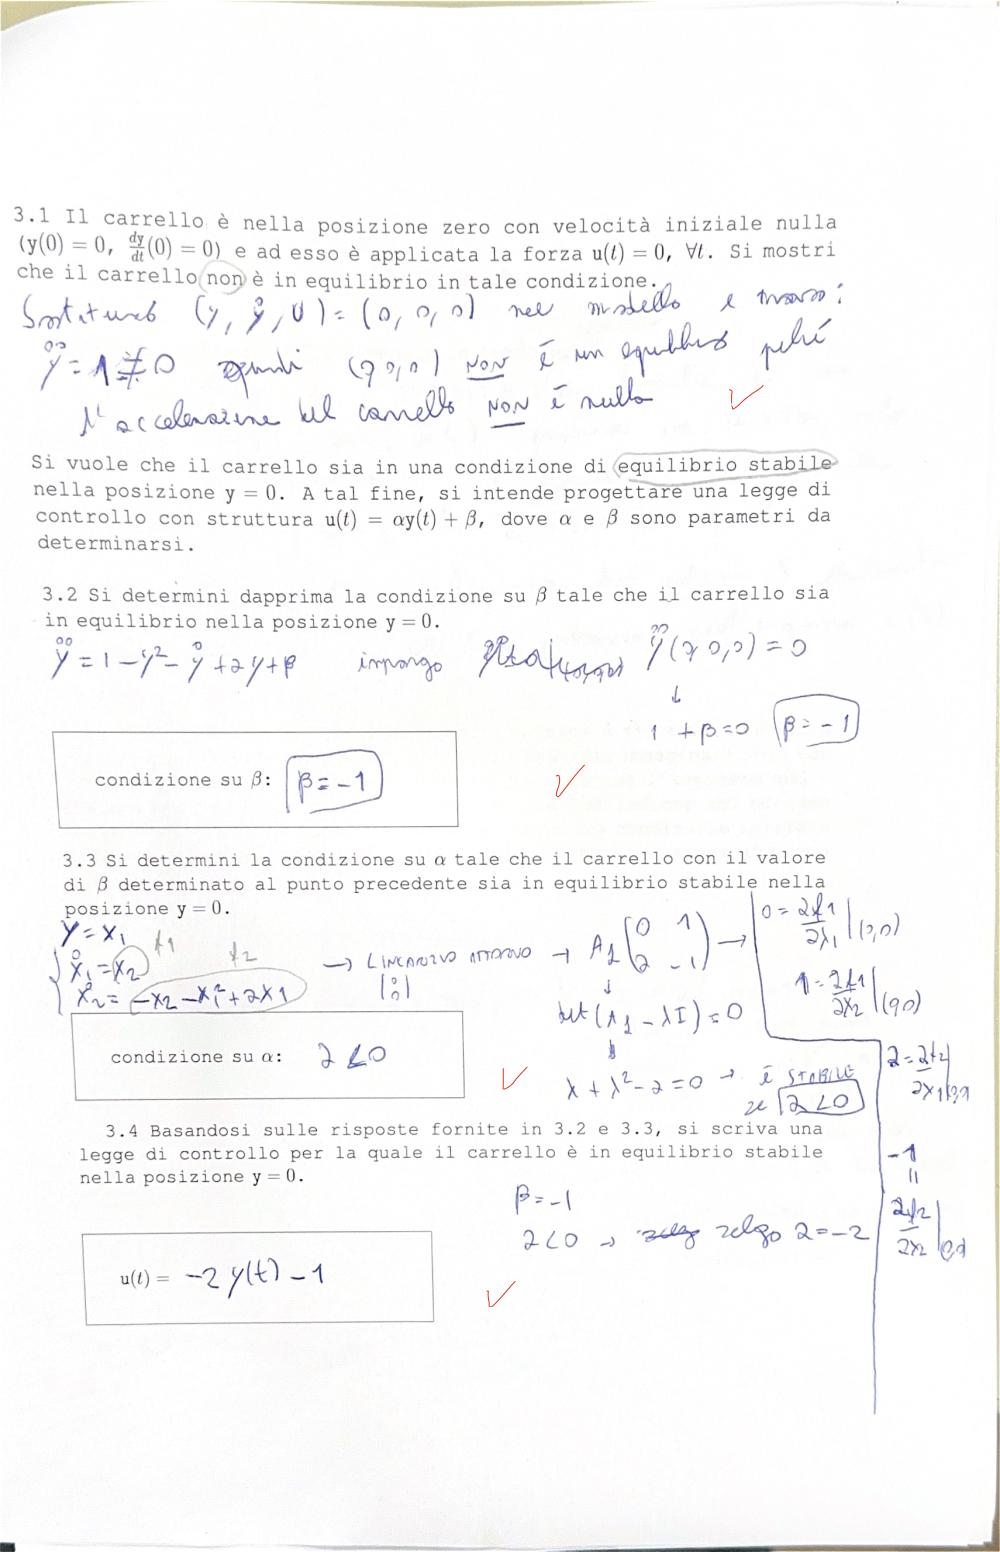 3.1 Il carrello è nella posizione zero con velocità iniziale nulla
(y(0) = 0, dy/dt(0) = 0) e ad esso è applicata la forza u(t) = 0, ∀t. Si mostri
che il carrello non è in equilibrio in tale condizione.
(y, ẏ, u) = (0, 0, 0) nel modello e trovo:
ÿ = 1 ≠ 0 quindi (0,0,0) NON è un equilibrio perché
l'accelerazione del carrello NON è nulla
Si vuole che il carrello sia in una condizione di equilibrio stabile
nella posizione y = 0. A tal fine, si intende progettare una legge di
controllo con struttura u(t) = αy(t) + β, dove α e β sono parametri da
determinarsi.
3.2 Si determini dapprima la condizione su β tale che il carrello sia
in equilibrio nella posizione y = 0.
ÿ = 1 - y² - ẏ + αy + β impongo ÿ(0,0,0) = 0
↓
1 + β = 0 β = -1
condizione su β: β = -1
3.3 Si determini la condizione su α tale che il carrello con il valore
di β determinato al punto precedente sia in equilibrio stabile nella
posizione y = 0.
y = x1
ẋ1 = x2 f1
ẋ2 = -x2 - x1² + αx1 f2
→ LINEARIZZO ATTORNO (0 0)
→ A1 (0 1
α -1) →
0 = ∂f1/∂x1 |(0,0)
1 = ∂f1/∂x2 |(0,0)
α = ∂f2/∂x1 |(0,0)
-1 = ∂f2/∂x2 |(0,0)
↓
det(A1 - λI) = 0
↓
λ + λ² - α = 0 → è STABILE
se α < 0
condizione su α: α < 0
3.4 Basandosi sulle risposte fornite in 3.2 e 3.3, si scriva una
legge di controllo per la quale il carrello è in equilibrio stabile
nella posizione y = 0.
β = -1
α < 0 → scelgo α = -2
u(t) = -2 y(t) - 1